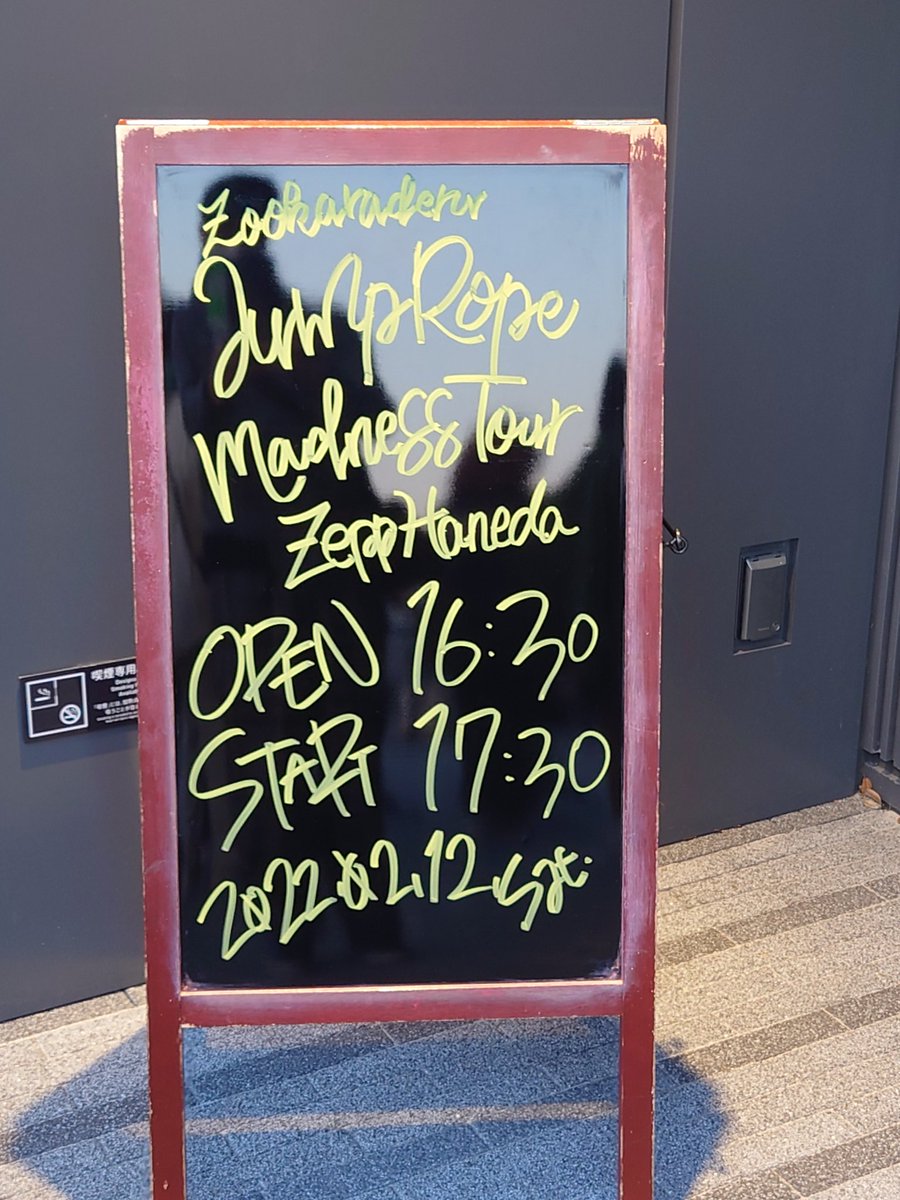 Zookaraderu
Jump Rope
Madness Tour
Zepp Haneda
OPEN 16:30
START 17:30
2022.02.12.Sat.
喫煙専用